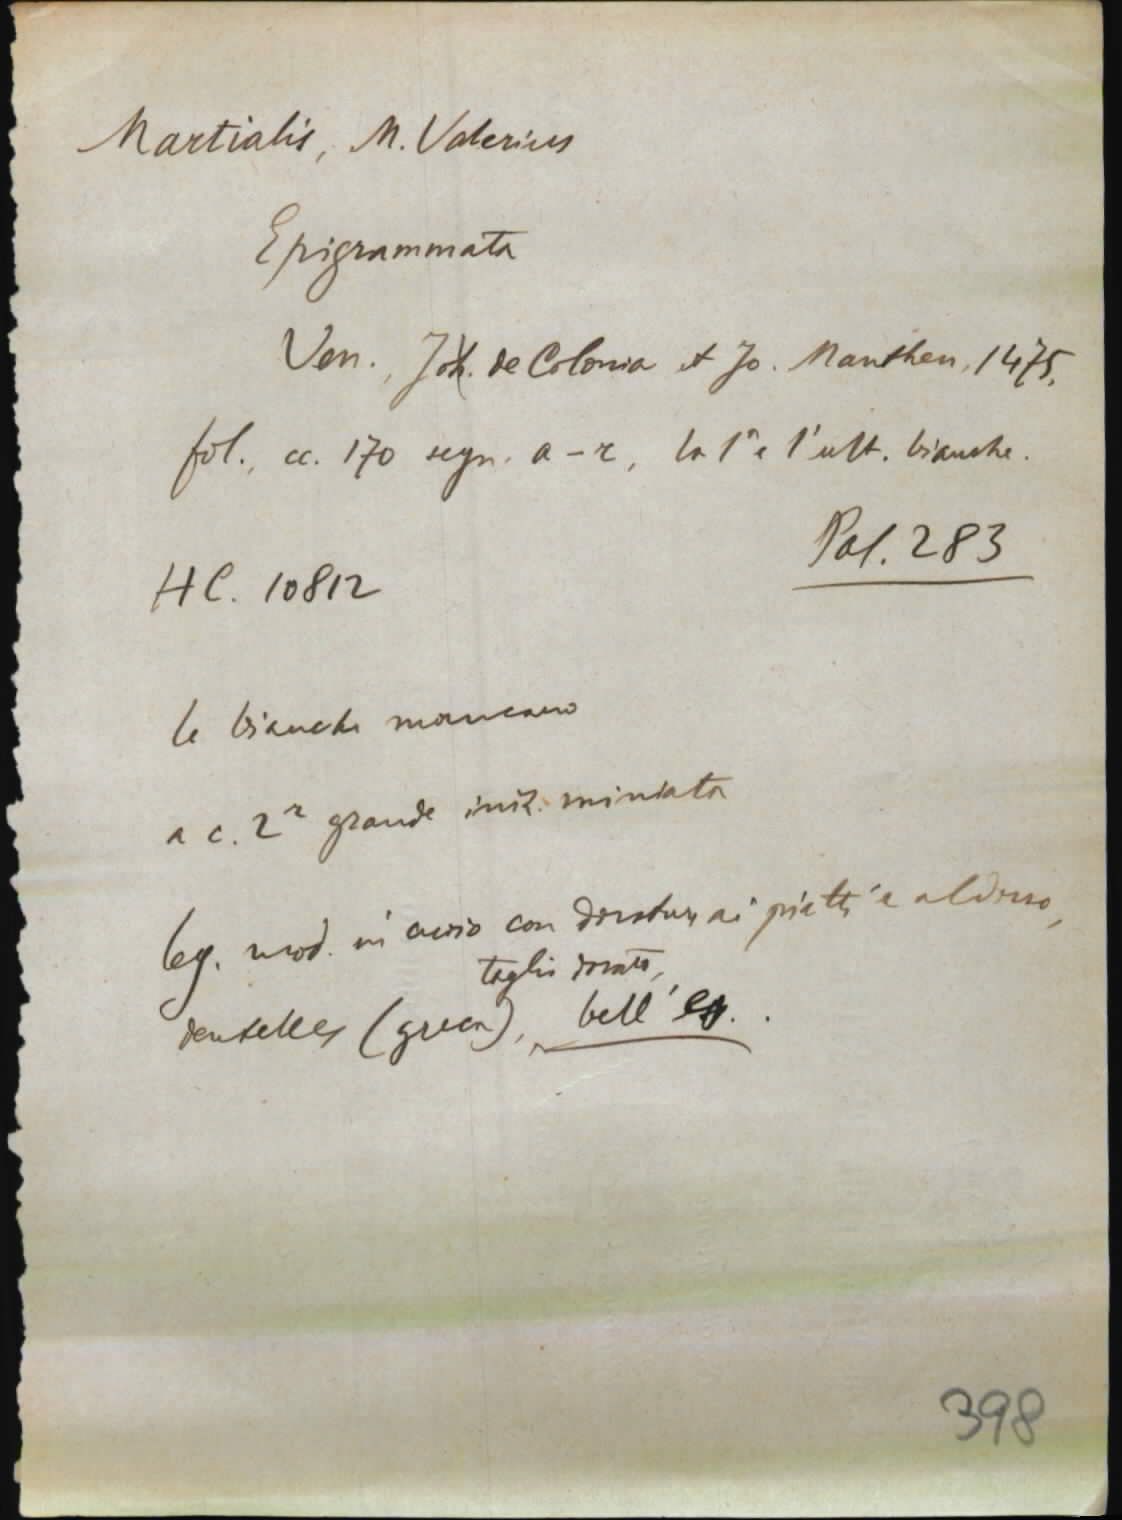 Martialis, M. Valerius
Epigrammata
Ven., Joh. de Colonia et Jo. Manthen, 1475,
fol., cc. 170 segn. a-r, la 1ª e l'ult. bianche.
Pal. 283
HC. 10812
le bianche mancano
a c. 2r grande iniz. miniata
leg. mod. in cuoio con dorature ai piatti e al dorso,
taglio dorato,
dentelles (greca), bell' es.
398